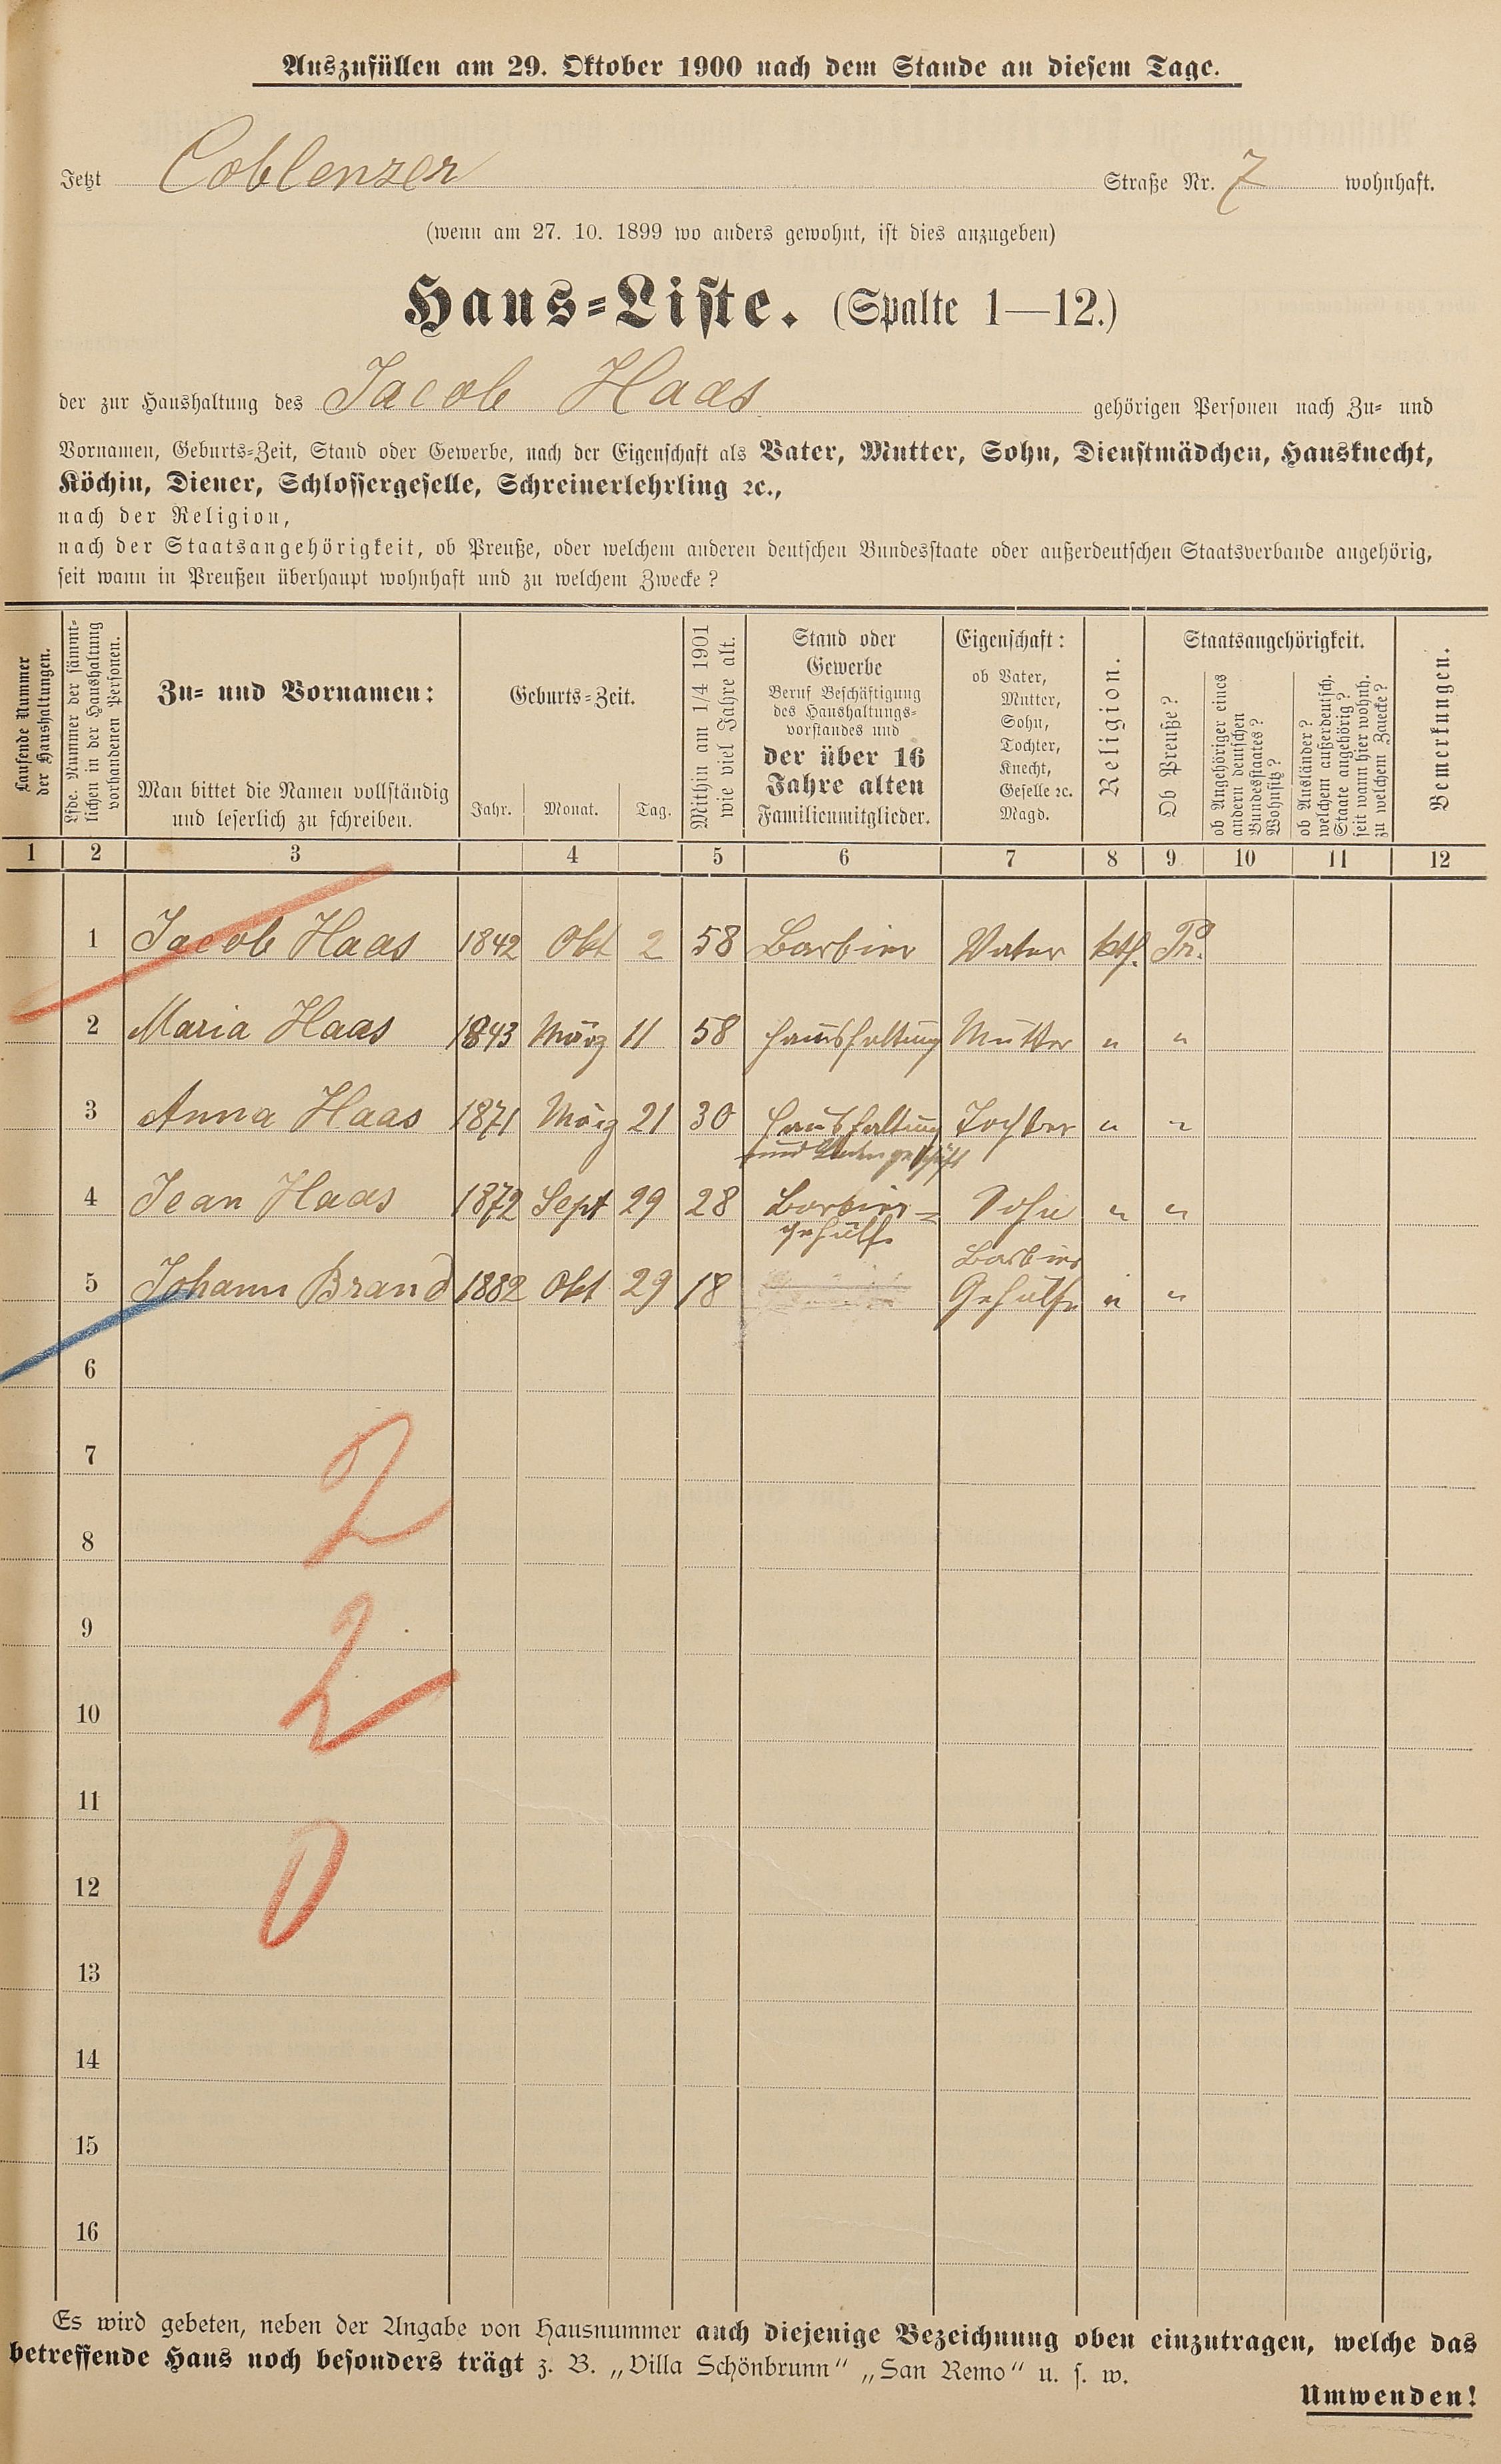 Auszufüllen am 29. Oktober 1900 nach dem Stande an diesem Tage.
Jetzt Coblenzer Straße Nr. 7 wohnhaft.
(wenn am 27. 10. 1899 wo anders gewohnt, ist dies anzugeben)
Haus-Liste. (Spalte 1—12.)
der zur Haushaltung des Jacob Haas gehörigen Personen nach Zu- und
Vornamen, Geburts-Zeit, Stand oder Gewerbe, nach der Eigenschaft als Vater, Mutter, Sohn, Dienstmädchen, Hausknecht,
Köchin, Diener, Schlossergeselle, Schreinerlehrling ꝛc.,
nach der Religion,
nach der Staatsangehörigkeit, ob Preuße, oder welchem anderen deutschen Bundesstaate oder außerdeutschen Staatsverbande angehörig,
seit wann in Preußen überhaupt wohnhaft und zu welchem Zwecke?
Laufende Nummer
der Haushaltungen.
Lfde. Nummer der sämmt-
lichen in der Haushaltung
vorhandenen Personen.
Zu- und Vornamen:
Man bittet die Namen vollständig
und leserlich zu schreiben.
Geburts-Zeit.
Jahr. Monat. Tag.
Mithin am 1/4 1901
wie viel Jahre alt.
Stand oder
Gewerbe
Beruf Beschäftigung
des Haushaltungs-
vorstandes und
der über 16
Jahre alten
Familienmitglieder.
Eigenschaft:
ob Vater,
Mutter,
Sohn,
Tochter,
Knecht,
Geselle ꝛc.
Magd.
Religion.
Staatsangehörigkeit.
Ob Preuße?
ob Angehöriger eines
andern deutschen
Bundesstaates?
Wohnsitz?
ob Ausländer?
welchem außerdeutsch.
Staate angehörig?
seit wann hier wohnh.
zu welchem Zwecke?
Bemerkungen.
1 2 3 4 5 6 7 8 9 10 11 12
1 Jacob Haas 1842 Okt 2 58 Barbier Vater kth. Pr.
2 Maria Haas 1843 März 11 58 Haushaltung Mutter " "
3 Anna Haas 1871 März 21 30 Haushaltung Tochter " "
und
4 Jean Haas 1872 Sept 29 28 Barbier= Sohn " "
gehülfe
Barbier
5 Johann Brand 1882 Okt 29 18 Gehülfe " "
6
7
2
8
9
2
10
11
0
12
13
14
15
16
Es wird gebeten, neben der Angabe von Hausnummer auch diejenige Bezeichnung oben einzutragen, welche das
betreffende Haus noch besonders trägt z. B. „Villa Schönbrunn“ „San Remo“ u. s. w.
Umwenden!